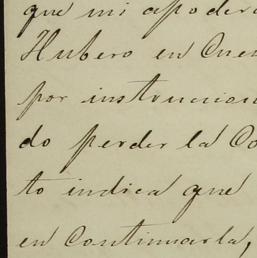 que mi apodera
Hubero en Cuen
por instruccion
do perder la Co
to indica que
en continuarla,